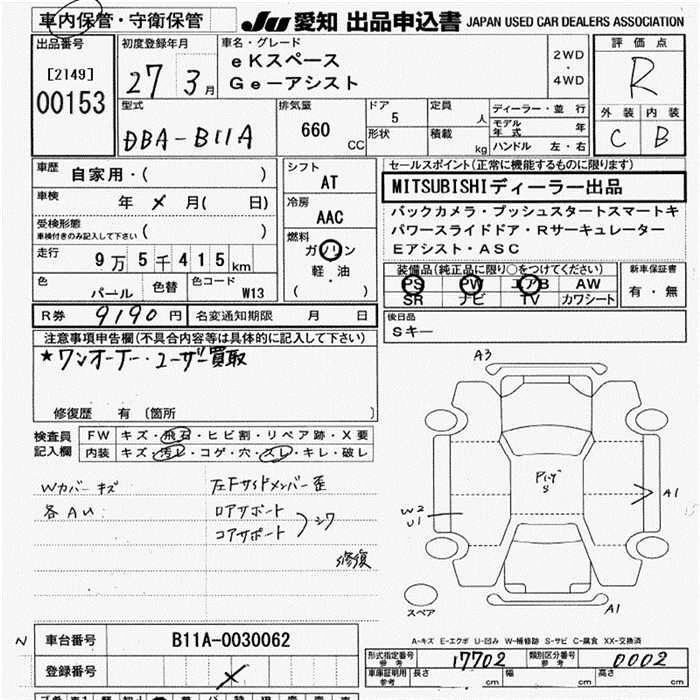 車内保管・守衛保管
JU 愛知 出品申込書 JAPAN USED CAR DEALERS ASSOCIATION
出品番号
[2149]
00153
初度登録年月
27 3月
車名・グレード
eKスペース
Ge－アシスト
2WD
・
4WD
評価点
R
外装 内装
C B
型式
DBA-B11A
排気量
660
CC
ドア
5
形状
定員
人
積載
kg
ディーラー・並行
モデル年式 年
ハンドル 左・右
車歴 自家用・( )
車検 年 メ 月( 日)
受検形態
車検付きのみ記入して下さい ( )
走行 9万5千415km
色 パール 色替 色コード W13
シフト
AT
冷房
AAC
燃料
ガソリン
軽・油
( )
セールスポイント(正常に機能するものに限ります)
MITSUBISHIディーラー出品
バックカメラ・プッシュスタートスマートキ
パワースライドドア・Rサーキュレーター
Eアシスト・ASC
装備品(純正品に限り○をつけてください)
PS PW エアB AW
SR ナビ TV カワシート
新車保証書
有・無
R券 9190円 名変通知期限 月 日
後日品
Sキー
注意事項申告欄(不具合内容等は具体的に記入して下さい)
★ワンオーナー・ユーザー買取
修復歴 有 〔箇所 〕
検査員
記入欄
FW キズ・飛石・ヒビ割・リペア跡・X要
内装 キズ・汚レ・コゲ・穴・スレ・キレ・破レ
Wカバーキズ
各AU
左Fサイドメンバー歪
ロアサポート
コアサポート
シワ
修復
A3
A1
W2
U1
A1
スペア
A-キズ E-エクボ U-凹み W-補修跡 S-サビ C-腐食 XX-交換済
N
車台番号 B11A-0030062
登録番号
形式指定番号
参考
17702
類別区分番号
参考
0002
車庫証明用
参考
長さ cm 幅 cm 高さ cm